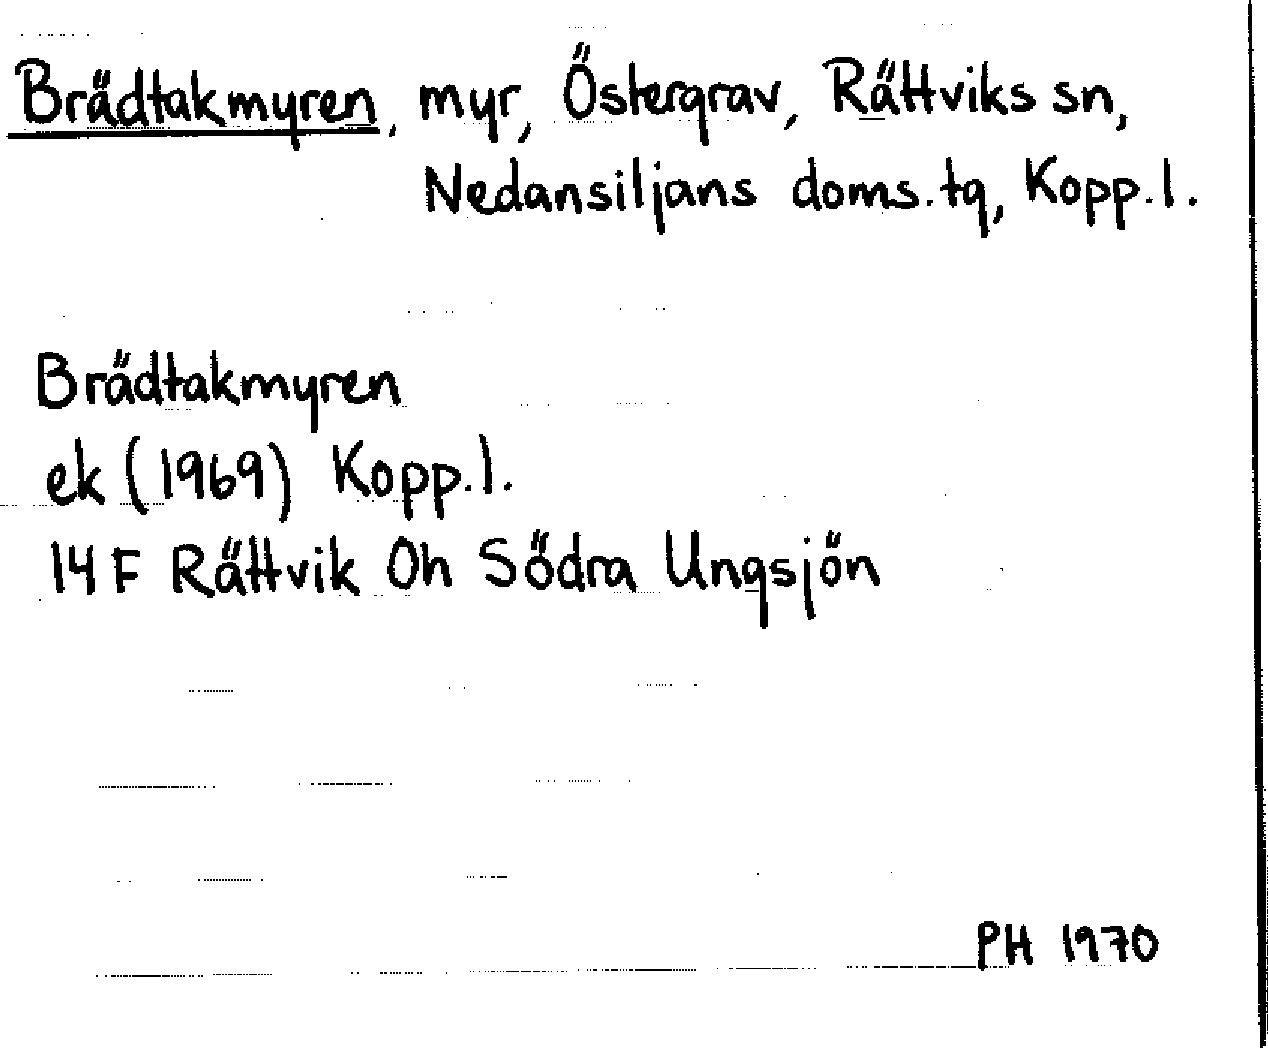 Brädtakmyren, myr, Östergrav, Rättviks sn,
Nedansiljans doms.tg, Kopp.l.
Brädtakmyren
ek (1969) Kopp.l.
14 F Rättvik Oh Södra Ungsjön
PH 1970